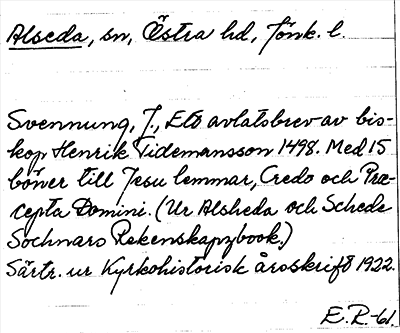 Alseda, sn, Östra hd, Jönk. l.
Svennung, J., Ett avlatsbrev av bis-
kop Henrik Tidemansson 1498. Med 15
böner till Jesu lemmar, Credo och Præ-
cepta Domini. (Ur Alsheda och Schede
Sochnars Rekenskapzbook.)
Särtr. ur Kyrkohistorisk årsskrift 1922.
E.R-61.